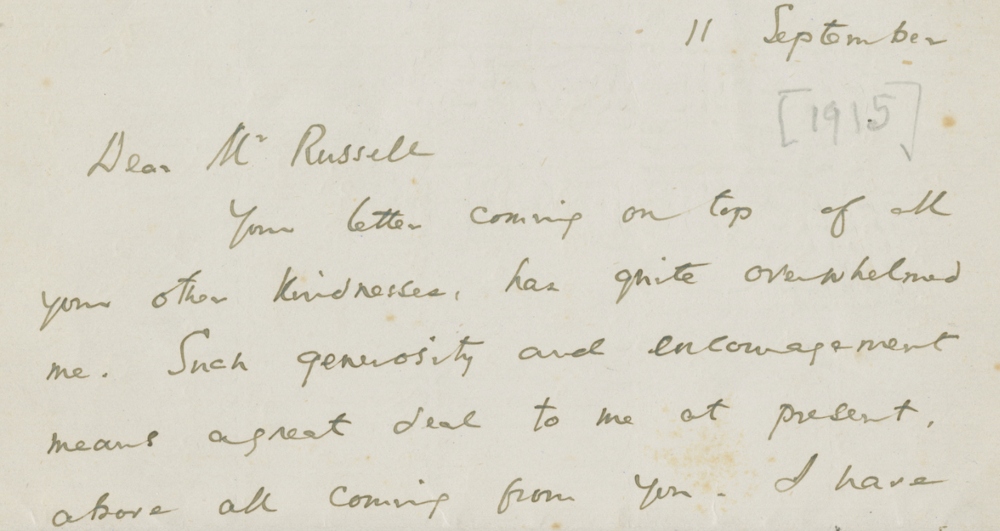 11 September
[1915]
Dear Mr Russell
Your letter coming on top of all
your other kindnesses, has quite overwhelmed
me. Such generosity and encouragement
means a great deal to me at present,
above all coming from you. I have